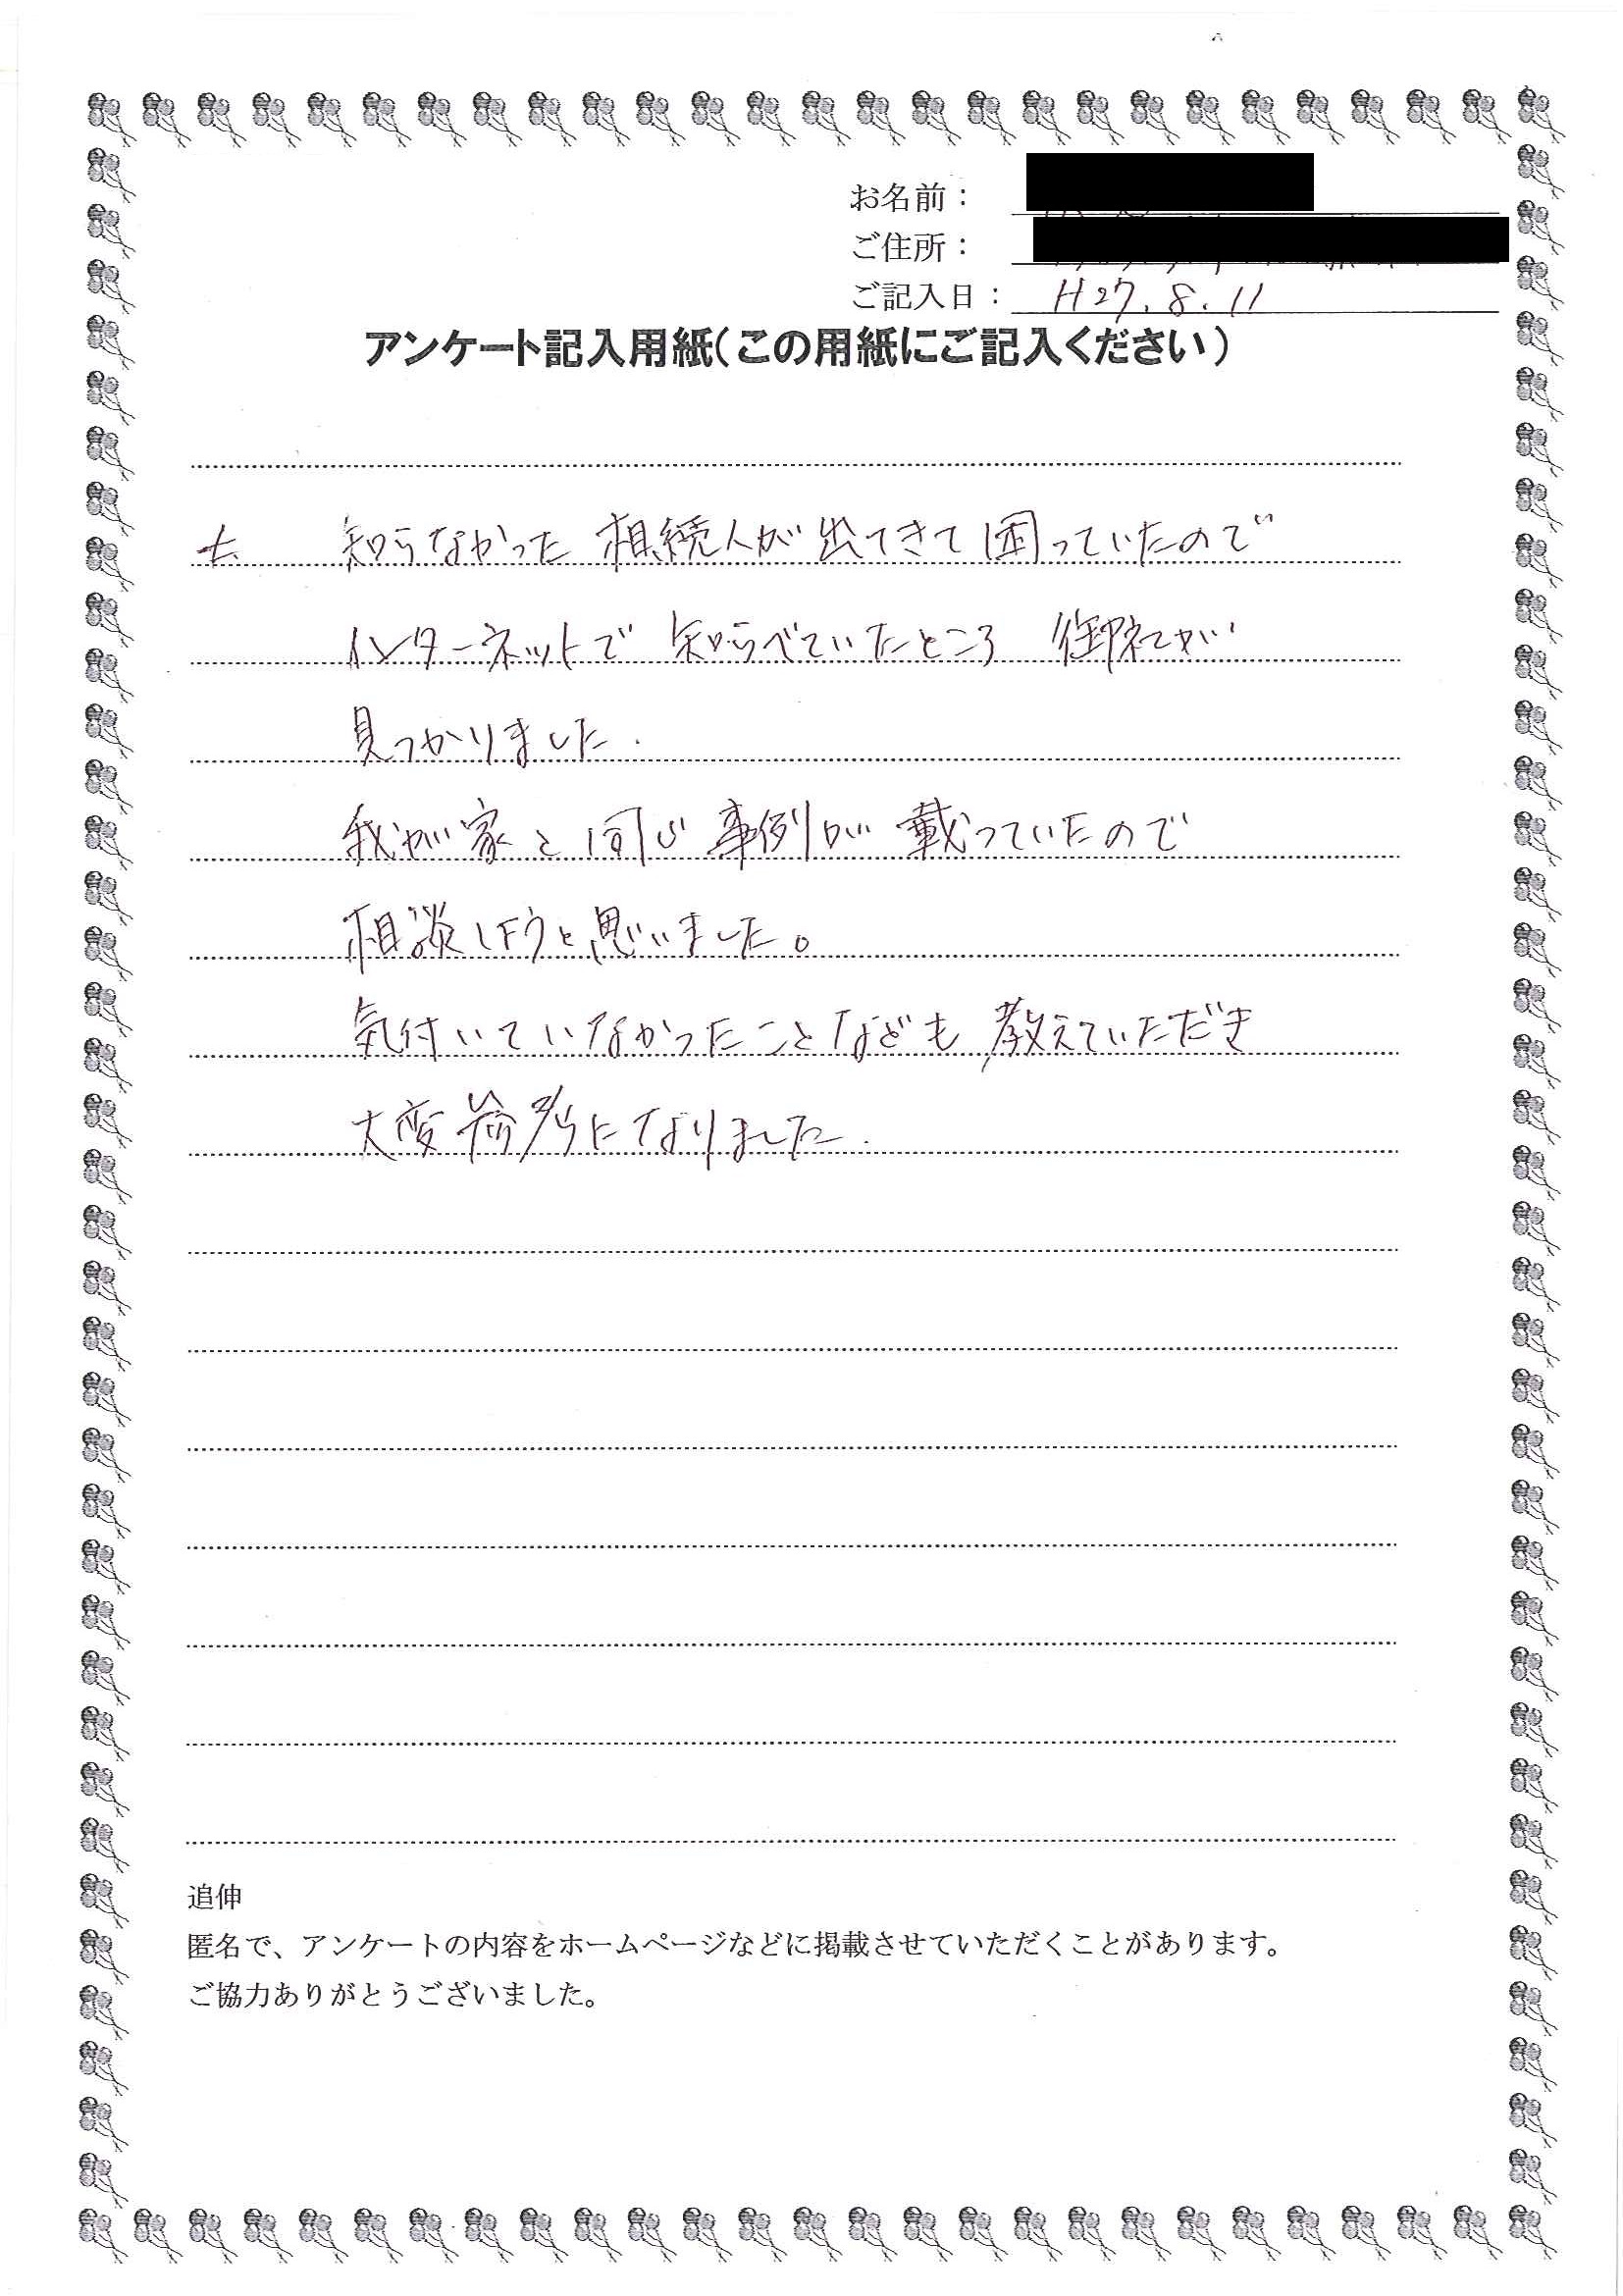 お名前：
ご住所：
ご記入日： H27.8.11
アンケート記入用紙（この用紙にご記入ください）
知らなかった 相続人が出てきて困っていたので
インターネットで 知らべていたところ 御社が
見つかりました.
我が家と同じ事例が載っていたので
相談しようと思いました。
気付いていなかったことなども教えていただき
大変 になりました.
追伸
匿名で、アンケートの内容をホームページなどに掲載させていただくことがあります。
ご協力ありがとうございました。